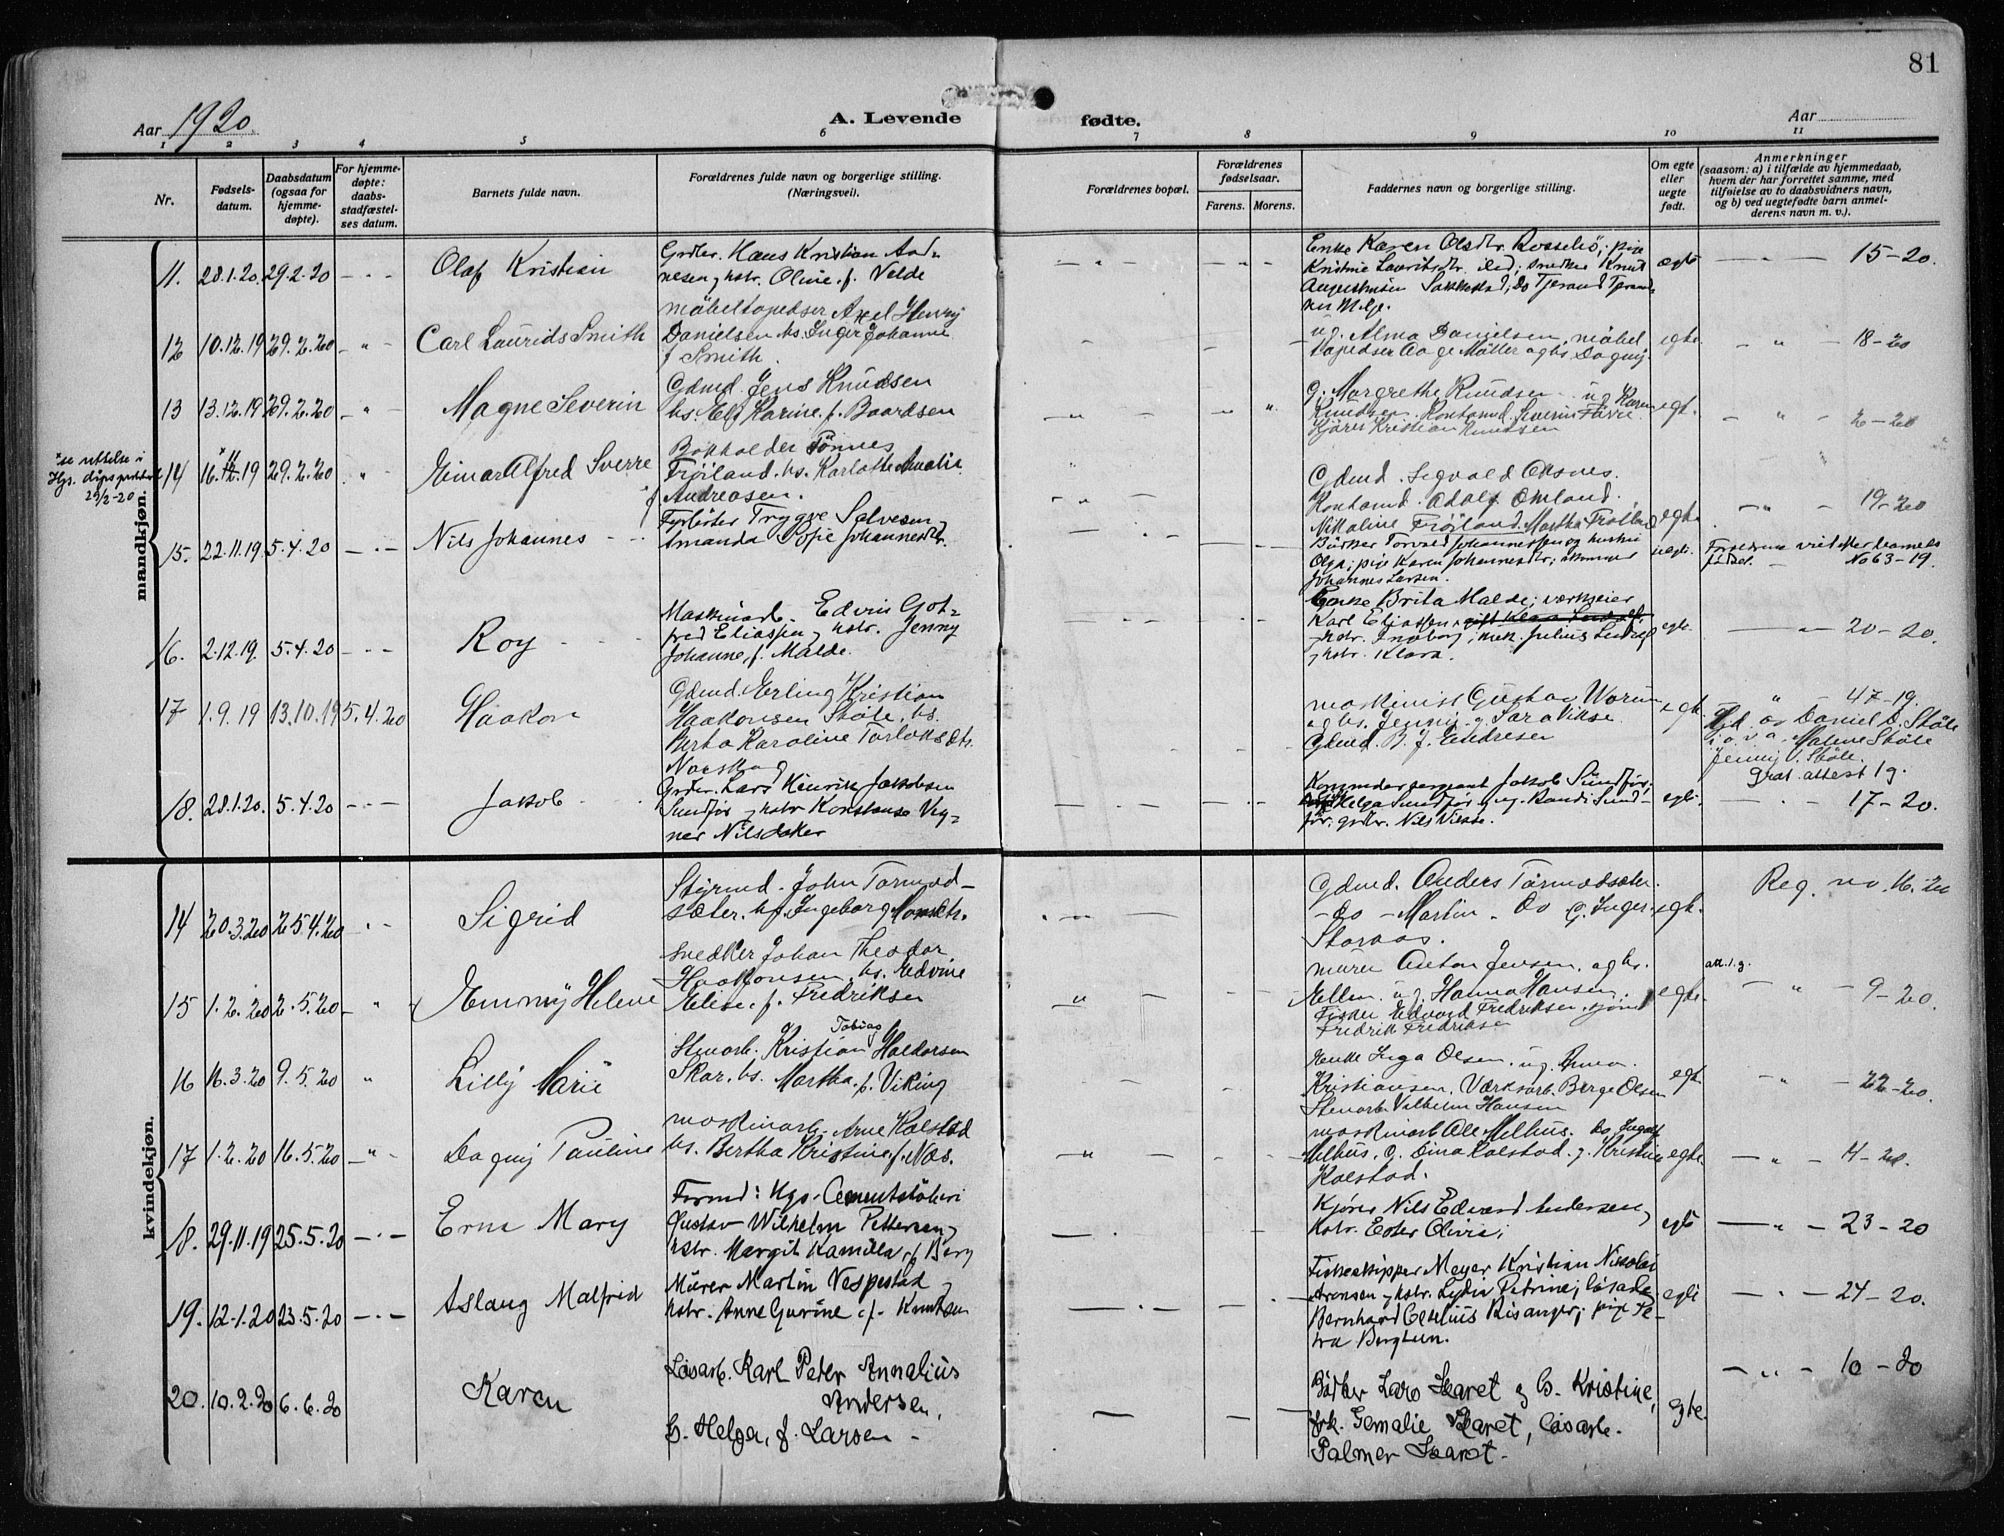 81
Aar 1920
A. Levende fødte.
Aar
1 2 3 4 5 6 7 8 9 10 11
Nr.
Fødsels-
datum.
Daabsdatum
(ogsaa for
hjemme-
døpte).
For hjemme-
døpte:
daabs-
stadfæstel-
ses datum.
Barnets fulde navn.
Forældrenes fulde navn og borgerlige stilling.
(Næringsvei).
Forældrenes bopæl.
Forældrenes
fødselsaar.
Farens. Morens.
Faddernes navn og borgerlige stilling.
Om egte
eller
uegte
født.
Anmerkninger
(saasom: a) i tilfælde av hjemmedaab,
hvem der har forrettet samme, med
tilføielse av to daabsvidners navn,
og b) ved uegtefødte barn anmel-
derens navn m. v.).
mandkjøn.
11. 28.1.20 29.2.20 Olaf Kristian
Grdbr. Hans Kristian Aad-
nesen, hstr. Oline, f. Velde
Enke Karen Olsdtr. Rosseliö; pike
Kristine Lauritsdtr. ibid; snedker Knut
egte
15-20.
12 10.12.19 29.2.20 Carl Laurids Smith
møbeltapedser Axel Henry
Danielsen hs. Inger Johanne
f Smith.
ug. Alma Danielsen, møbel
tapedser Aage Møller og hs. Dagny
egte
18-20
13 13.12.19 29.2.20 Magne Severin
Gdmd. Jens Knudsen
hs. Elf Karine, f. Baardsen
g. Margrethe Knudsen. ug Karen
Knudsen. Kontomd. Severin Førre
Kjører Kristian Knudsen
egt.
2-20
29/2-20
14 16.12.19 29.2.20 Einar Alfred Sverre
Bokholder Tønnes
Frøiland. hs. Karlotte Amalie
f Andreasen.
Gdmd. Sigvald Oksnes.
Kontomd. Adolf Omland.
Nikoline Frøiland. Martha Frøiland
egte
19-20
15. 22.11.19 5.4.20 Nils Johannes
Fyrbøter Trygve Salvesen,
Amanda Sofie Johannesdtr.
Bødker Torvald Johannessen og hustru
Olga; pike Karen Johannesdtr;
Johannes Larsen.
uegte.
No 63-19.
16. 2.12.19. 5.4.20 Roy
Maskinarb. Edvin Got-
fred Eliassen, hstr. Jenny
Johanne, f. Malde.
Enke Brita Malde; verkseier
Karl Eliassen,
hstr. Ingeborg;
hstr. Klara.
egte.
20-20.
17 1.9.19 13.10.19 5.4.20 Haakon
Gdmd. Erling Kristian
Haakonsen Støle. hs.
Berta Karoline Torloksdtr.
Norskog
maskinist Gustav Worum
og hs. Jenny. g. Sara Vikse.
Gdmd. B. J. Endresen
egte.
47-19.
Hjd. av Daniel D. Støle
i o. v. a. Malene Støle
Jenny V. Støle.
Grat. attest 1 g.
18. 28.1.20. 5.4.20 Jakob
Grdbr. Lars Henrik Jakobsen
Sundfør, hstr Konstanse Vig-
ner Nilsdotter
Jakob Sundfør;
Helga Sundfør, ug. Randi Sund-
før; grdbr. Nils Vikse.
egte.
17-20.
kvindekjøn.
14 20.3.20 25.4.20 Sigrid
Styrmd. John Tormod-
sæter. hs. Ingeborg Monsdtr.
Gdmd. Anders Tormodsæter.
- do - Martin - Do g. Inger
Storaas.
egte.
Reg. no. 16-20
15 1.2.20 2.5.20 Emmy Helene
Snedker Johan Theodor
Haakonsen, hs. Edvine
Elise, f. Fredriksen
murer Anton Jensen. og hs.
Ellen. ug. Hanna Hansen.
Fisker Edvard Fredriksen. sjømd
Fredrik Fredriksen
egte.
att. 1. g.
9-20.
16 16.3.20 9.5.20 Lilly Marie
Stenarb. Kristian Tobias Haldorsen
Skar. hs. Martha f. Viking
Enke Inga Olsen. ug. Anna
Kristiansen. Værksarb. Berge Olsen
Stenarb Vilhelm Hansen
egte.
22-20.
17 1.2.20 16.5.20 Dagny Pauline
maskinarb. Arne Kolstad
hs. Bertha Kristine f. Næs.
maskinarb Ole Melhus. hs. Ingeb.
Melhus. g. Dina Kolstad. g. Kristine
Kolstad.
egte
4-20.
18. 29.11.19 25.5.20 Erna Mary
Formd: Hgs. Cementstøberi
Gustav Wilhelm Pettersen,
hstr. Margit Kamilla, f. Berg
Kjører Nils Edvard Andersen,
hstr. Ester Olivia;
egte
23-20
19. 12.1.20 23.5.20 Aslaug Malfrid
Mürer Martin Vespestad,
hstr. Anne Gurine f. Knutsen
Fiskeskipper Meyer Kristian Nikolai
Arensen, hstr. Lydia Petrine;
Bernhard Cecelius Risanger; pike Pe-
tra Bergtun.
egte
24-20.
20. 10.2.20 6.6.20 Karen
Løsarb. Karl Peter Annelius
Andersen,
hs. Helga, f. Larsen
Bødker Lars Skaret og hs. Kristine,
frk. Gemalie Skaret, Løsarb.
Palmer Skaret.
egte.
10-20